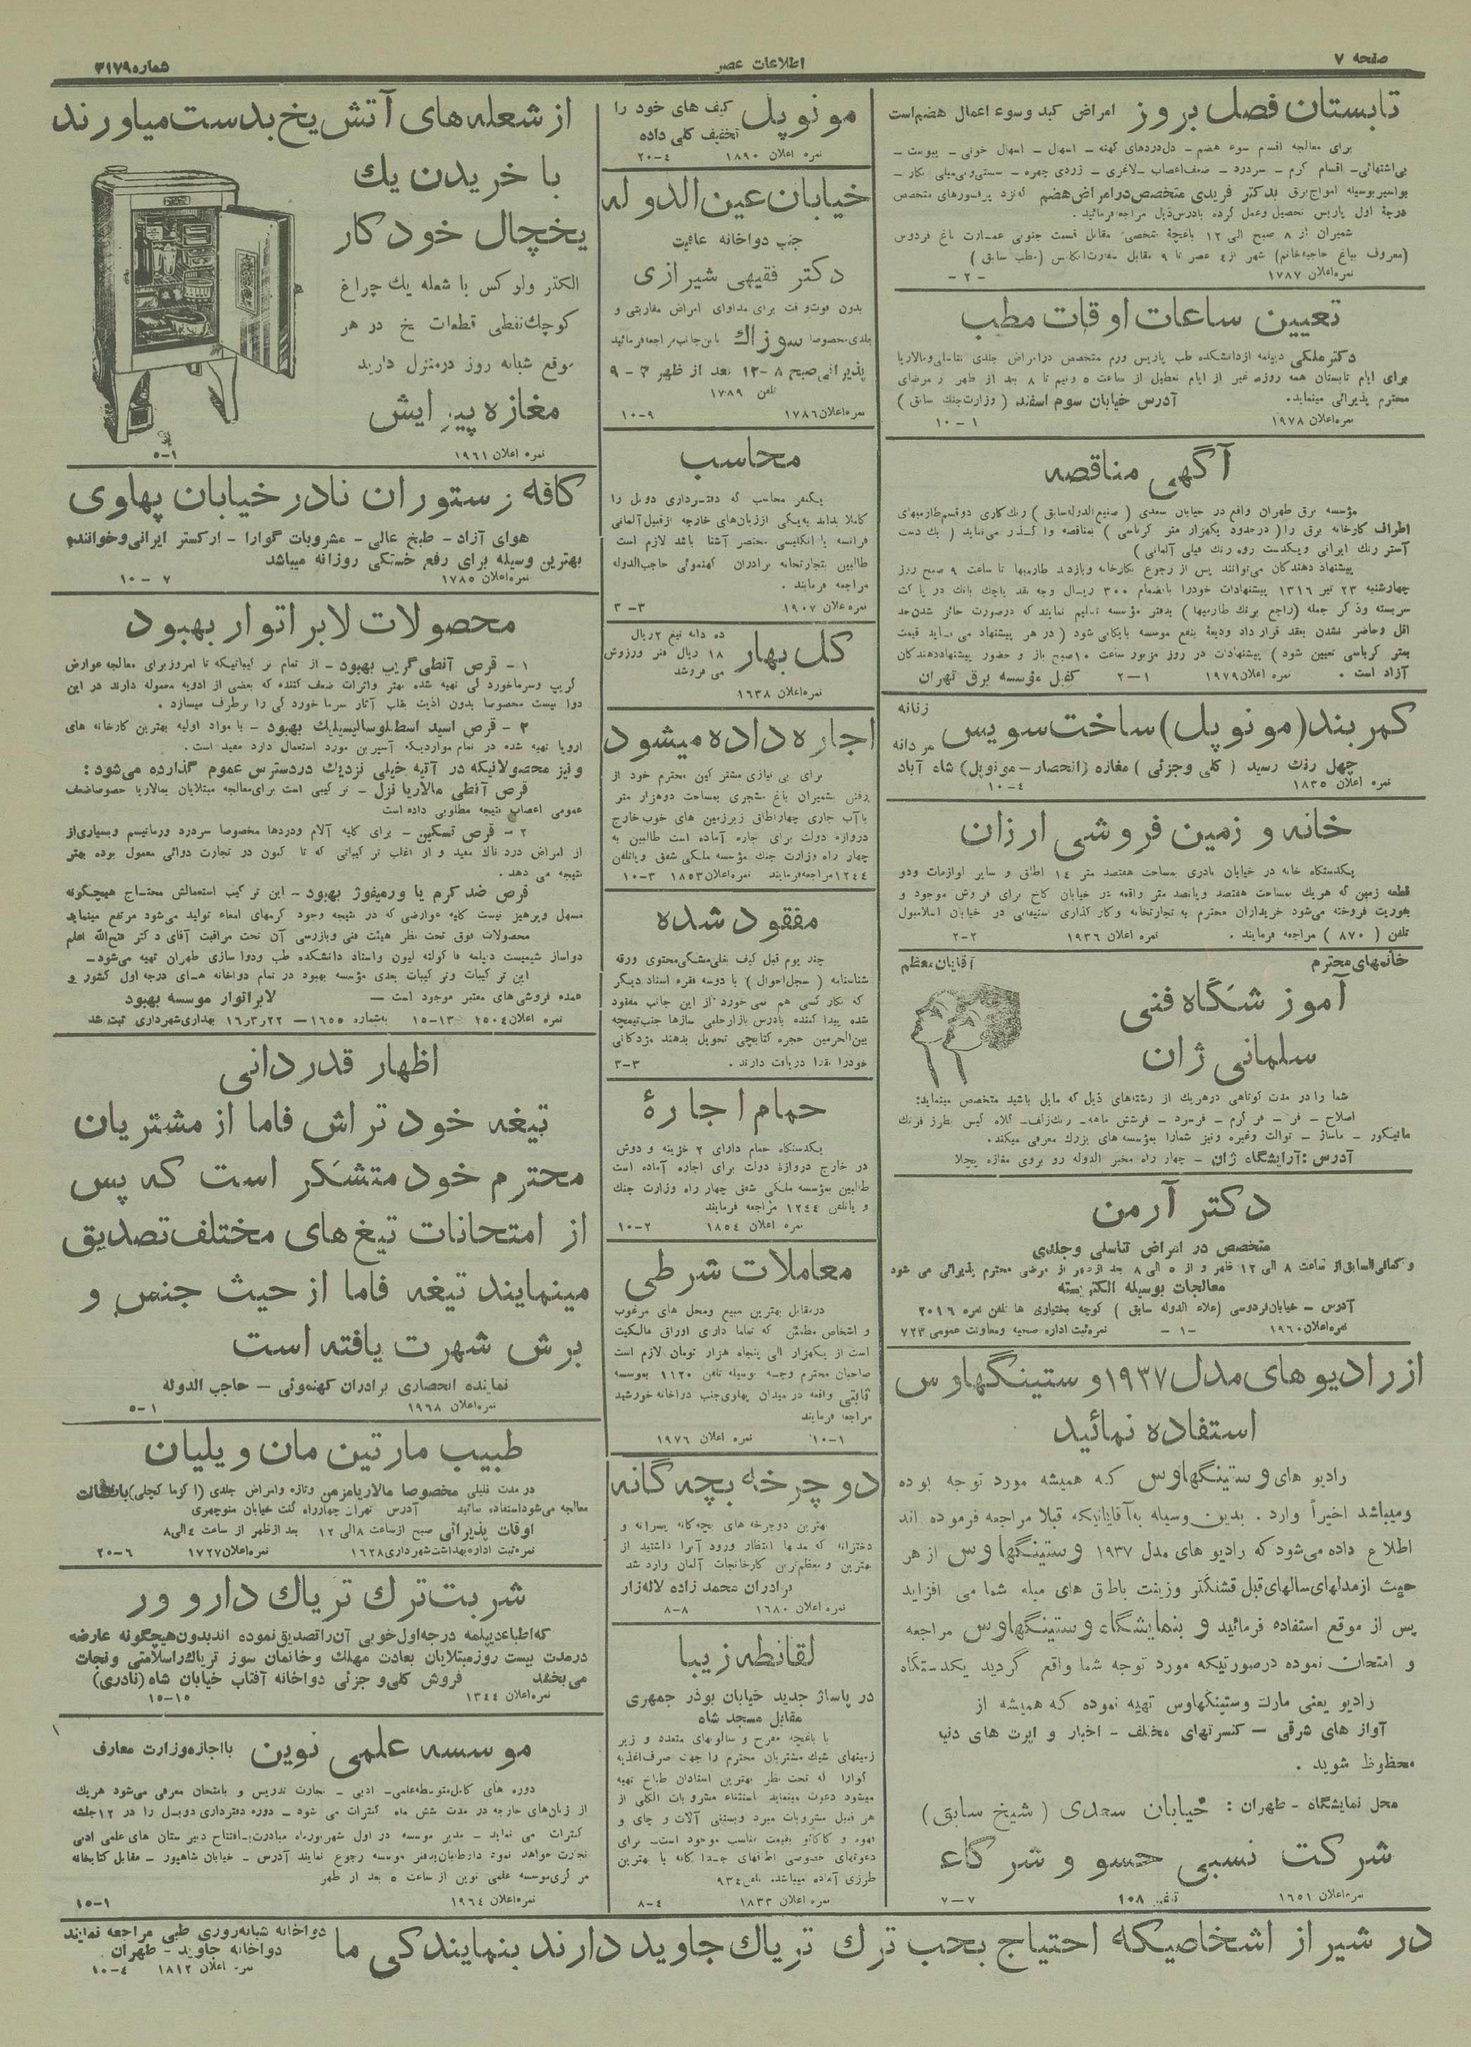 صفحه ۷
اطلاعات عصر
شماره ۳۱۷۹
تابستان فصل بروز امراض کبد وسوء اعمال هضم است
برای معالجه اقسام سوء هضم – دل‌دردهای کهنه – اسهال – اسهال خونی – یبوست –
بی‌اشتهائی – اقسام کرم – سردرد – ضعف اعصاب – لاغری – زردی چهره – سستی و بی‌میلی بکار –
بواسیر بوسیله امواج برق بدکتر فریدی متخصص در امراض هضم که نزد پرفسورهای متخصص
درجهٔ اول پاریس تحصیل وعمل کرده بآدرس ذیل مراجعه فرمائید.
شمیران از ۸ صبح الی ۱۲ باغچهٔ شخصی مقابل قسمت جنوبی عمارت باغ فردوس
(معروف بباغ حاجیه‌خانم) شهر از ۴ عصر تا ۹ مقابل سفارت انگلیس (مطب سابق)
نمره اعلان ۱۷۸۷ – ۲ –
تعیین ساعات اوقات مطب
دکتر ملکی دیپلمه از دانشکده طب پاریس ورم متخصص در امراض جلدی تناسلی و مالاریا
برای ایام تابستان همه روزه غیر از ایام تعطیل از ساعت ۵ ونیم تا ۸ بعد از ظهر و مرضای
محترم پذیرائی مینماید. آدرس خیابان سوم اسفند (وزارت جنگ سابق)
نمره اعلان ۱۹۷۸ ۱ – ۱۰
آگهی مناقصه
مؤسسه برق طهران واقع در خیابان سعدی (صنیع الدوله سابق) رنگ کاری دو قسم طارمیهای
اطراف کارخانه برق را (در حدود یکهزار متر کرباسی) بمناقصه واگذار می‌نماید (یک دست
آستر رنگ ایرانی ویکدست رویه رنگ فیلی آلمانی)
پیشنهاد دهندگان می‌توانند پس از رجوع بکارخانه وبازدید طارمیها تا ساعت ۹ صبح روز
چهارشنبه ۲۳ تیر ۱۳۱۶ پیشنهادات خودرا بانضمام ۳۰۰ ریال وجه نقد یا چک بانک در پاکت
سربسته وذکر جمله (راجع برنگ طارمیها) بدفتر مؤسسه تسلیم نمایند که درصورت حائز شدن حد
اقل وحاضر نشدن بعقد قرارداد ودیعهٔ بنفع موسسه بایگانی شود (در هر پیشنهاد می‌باید قیمت
بمتر کرباسی تعیین شود) پیشنهادات در روز مزبور ساعت ۱۰ صبح باز و حضور پیشنهاددهندگان
آزاد است. نمره اعلان ۱۹۷۹ ۱–۲ کفیل مؤسسه برق تهران
کمربند (مونوپل) ساخت سویس زنانه مردانه
چهل رنگ رسید (کلی وجزئی) مغازه (انحصار – مونوپل) شاه آباد
نمره اعلان ۱۸۳۵ ۴–۱۰
خانه و زمین فروشی ارزان
یکدستگاه خانه در خیابان پادری بمساحت هفتصد متر ۱۴ اطاق و سایر لوازمات ودو
قطعه زمین که هریک بمساحت هفتصد وپانصد متر واقعه در خیابان کاخ برای فروش موجود و
بفوریت فروخته می‌شود خریداران محترم به تجارتخانه وکارگذاری در خیابان اسلامبول
تلفن (۸۷۰) مراجعه فرمایند. نمره اعلان ۱۹۳۶ ۲–۲
خانمهای محترم آقایان معظم
آموزشگاه فنی
سلمانی ژان
شما را در مدت کوتاهی درهریک از رشته‌های ذیل که مایل باشید متخصص مینماید:
اصلاح – فر – فر گرم – فر سرد – فرشش ماهه – رنگ زلف – کلاه گیس بطرز فرنگ
مانیکور – ماساژ – توالت وغیره ونیز شمارا بمؤسسه‌های بزرگ معرفی میکند.
آدرس: آرایشگاه ژان – چهار راه مخبر الدوله رو بروی مغازه پیچلا
دکتر آرمن
متخصص در امراض تناسلی وجلدی
و کمافی‌السابق از ساعت ۸ الی ۱۲ ظهر و از ۵ الی ۸ بعد از ظهر از مرضی محترم پذیرائی می شود
معالجات بوسیله الکتریسته
آدرس – خیابان فردوسی (علاء الدوله سابق) کوچه بختیاری ها تلفن نمره ۲۰۱۶
نمره اعلان ۱۹۶۰ –۱– نمره ثبت اداره صحیه ومعاونت عمومی ۷۲۳
از رادیوهای مدل ۱۹۳۷ وستینگهاوس
استفاده نمائید
رادیو های وستینگهاوس که همیشه مورد توجه بوده
ومیباشد اخیراً وارد. بدین وسیله به آقایانیکه قبلا مراجعه فرموده اند
اطلاع داده می‌شود که رادیو های مدل ۱۹۳۷ وستینگهاوس از هر
حیث از مدلهای سالهای قبل قشنگتر وزینت باطاق های مبله شما می افزاید
پس از موقع استفاده فرمائید و بنمایشگاه وستینگهاوس مراجعه
و امتحان نموده درصورتیکه مورد توجه شما واقع گردید یکدستگاه
رادیو یعنی مارک وستینگهاوس تهیه نموده که همیشه از
آواز های شرقی – کنسرتهای مختلف – اخبار و اپرت های دنیا
محظوظ شوید.
محل نمایشگاه – طهران: خیابان سعدی (شیخ سابق)
شرکت نسبی حسو و شرکاء
نمره اعلان ۱۶۵۱ تلفن ۱۰۸ ۷–۷
مونوپل کیف های خود را
تخفیف کلی داده
نمره اعلان ۱۸۹۰ ۴–۲۰
خیابان عین الدوله
جنب دواخانه عافیت
دکتر فقیهی شیرازی
بدون فوت وقت برای مداوای امراض مقاربتی و
جلدی مخصوصا سوزاک باین جانب مراجعه فرمائید
پذیرائی صبح ۸–۱۲ بعد از ظهر ۳–۹
تلفن ۱۷۸۹
نمره اعلان ۱۷۸۶ ۹–۱۰
محاسب
یکنفر محاسب که دفترداری دوبل را
کاملا بداند به یکی از زبان‌های خارجه از قبیل آلمانی
فرانسه یا انگلیسی مختصر آشنا باشد لازم است
طالبین بتجارتخانه برادران کهنموئی حاجب الدوله
مراجعه فرمایند.
نمره علان ۱۹۰۷ ۳–۳
گل بهار ده دانه تیغ ۲ ریال
۱۸ ریال فنر ورزوش
می فروشد
نمره اعلان ۱۶۳۸
اجاره داده میشود
برای بی نیازی مشترکین محترم خود از
رفتن بشمیران باغ مشجری بمساحت دوهزار متر
با آب جاری چهار اطاق زیرزمین های خوب خارج
دروازه دولت برای اجاره آماده است طالبین به
چهار راه وزارت جنگ مؤسسه ملکی شفق ویا تلفن
۱۲۴۴ مراجعه فرمایند نمره اعلان ۱۸۵۳ ۳–۱۰
مفقود شده
چند یوم قبل کیف بغلی مشکی محتوی ورقه
شناسنامه (سجل احوال) با دوسه فقره اسناد دیگر
که بکار کسی هم نمی خورد از این جانب مفقود
شده پیدا کننده بآدرس بازار حلبی سازها جنب تیمچه
بین‌الحرمین حجره کتابچی تحویل بدهند مژدگانی
خودرا نقدا دریافت دارند. ۳–۳
حمام اجارهٔ
یکدستگاه حمام دارای ۲ خزینه و دوش
در خارج دروازهٔ دولت برای اجاره آماده است
طالبین بمؤسسه ملکی شفق چهار راه وزارت جنگ
و یا تلفن ۱۲۴۴ مراجعه فرمایند
نمره اعلان ۱۸۵۴ ۲–۱۰
معاملات شرطی
درمقابل بهترین مبیع ومحل های مرغوب
و اشخاص مطمئن که تماما دارای اوراق مالکیت
است از یکهزار الی پنجاه هزار تومان لازم است
صاحبان محترم وجه بوسیله تلفن ۱۱۲۰ بموسسه
واقعه در میدان پهلوی جنب دواخانه خورشید
مراجعه فرمایند
نمره اعلان ۱۹۷۶ ۱–۱۰
دوچرخه بچه گانه
بهترین دوچرخه های بچه‌گانه پسرانه و
دخترانه که مدتها انتظار ورود آنرا داشتید از
بهترین و معظم‌ترین کارخانجات آلمان وارد شد
برادران محمد زاده لاله‌زار
نمره اعلان ۱۶۸۰ ۸–۸
لقانطه زیبا
در پاساژ جدید خیابان بوذر جمهری
مقابل مسجد شاه
با باغچه مفرح و سالونهای متعدد و زیر
زمینهای شیک مشتریان محترم را جهت صرف اغذیه
گوارا که تحت نظر بهترین استادان طباخ تهیه
میشود دعوت مینماید استثناء مشروبات الکلی از
هر قبیل مشروبات مبرد وبستنی آلات و چای و
قهوه و کاکائو بقیمت مناسب موجود است– برای
دعوتهای خصوصی اطاقهای جداگانه با بهترین
طرزی آماده میباشد. تلفن ۹۳۴
نمره اعلان ۱۸۳۳ ۴–۸
از شعله‌های آتش یخ بدست میاورند
با خریدن یک
یخچال خودکار
الکترولوکس با شعله یک چراغ
کوچک نفطی قطعات یخ در هر
موقع شبانه روز درمنزل دارید
مغازه پیرایش
نمره اعلان ۱۹۶۱ ۱–۵
کافه رستوران نادر خیابان پهلوی
هوای آزاد – طبخ عالی – مشروبات گوارا – ارکستر ایرانی وخواننده
بهترین وسیله برای رفع خستگی روزانه میباشد
نمره اعلان ۱۷۸۵ ۷–۱۰
محصولات لابراتوار بهبود
۱ – قرص آنطی گریپ بهبود – از تمام ترکیباتیکه تا امروز برای معالجه عوارض
گریپ وسرماخوردگی تهیه شده بهتر واثرات ضعف کننده که بعضی از ادویه معموله دارند در این
دوا نیست مخصوصا بدون اذیت بقلب آثار سرما خوردگی را برطرف میسازد.
۲ – قرص اسید اسطلوسالیسیلیک بهبود – با مواد اولیه بهترین کارخانه های
اروپا تهیه شده در تمام مواردیکه آسپرین مورد استعمال دارد مفید است.
ونیز محصولاتیکه در آتیه خیلی نزدیک دردسترس عموم گذارده می‌شود:
قرص آنطی مالاریا نزل – ترکیبی است برای معالجه مبتلایان بمالاریا خصوصا ضعف
عمومی اعصاب نتیجه مطلوبی داده است
۲ – قرص تسکین – برای کلیه آلام ودردها مخصوصا سردرد ورماتیسم وبسیاری از
از امراض دردناک مفید و از اغلب ترکیباتی که تا کنون در تجارت دوائی معمول بوده بهتر
نتیجه می دهد.
قرص ضد کرم یا ورمیفوژ بهبود – این ترکیب استعمالش محتاج هیچگونه
مسهل وپرهیز نیست کلیه عوارضی که در نتیجه وجود کرمهای امعاء تولید می‌شود مرتفع مینماید
محصولات فوق تحت نظر هیئت فنی وبازرسی آن تحت مراقبت آقای دکتر فتح‌الله اعلم
دواساز شیمیست دیپلمه فاکولته لیون واستاد دانشکده طب ودوا سازی طهران تهیه می‌شود –
این ترکیبات وترکیبات بعدی مؤسسه بهبود در تمام دواخانه های درجه اول کشور و
عمده فروشی های معتبر موجود است – لابراتوار موسسه بهبود
نمره اعلان ۱۵۰۴ ۱۳–۱۵ به‌شماره ۱۶۵۵ – ۲۲ر۳ر۱۶ بهداری شهرداری ثبت شد
اظهار قدردانی
تیغه خود تراش فاما از مشتریان
محترم خود متشکر است که پس
از امتحانات تیغ های مختلف تصدیق
مینمایند تیغه فاما از حیث جنس و
برش شهرت یافته است
نماینده انحصاری برادران کهنموئی – حاجب الدوله
نمره اعلان ۱۹۶۸ ۱–۵
طبیب مارتین مان ویلیان
در مدت قلیلی مخصوصا مالاریا مزمن وتازه وامراض جلدی (اگزما کچلی) باضمانت
معالجه می‌شود استفاده نمائید آدرس تهران چهارراه کنت خیابان منوچهری
اوقات پذیرائی صبح از ساعت ۸ الی ۱۲ بعد از ظهر از ساعت ۴ الی ۸
نمره ثبت اداره بهداشت شهرداری ۱۶۲۸ نمره اعلان ۱۷۲۷ ۶–۲۰
شربت ترک تریاک داروور
که اطباء دیپلمه درجه اول خوبی آن را تصدیق نموده اند بدون هیچگونه عارضه
درمدت بیست روز مبتلایان بعادت مهلک وخانمان سوز تریاک را سلامتی ونجات
می بخشد فروش کلی و جزئی دواخانه آفتاب خیابان شاه (نادری)
نمره اعلان ۱۳۴۴ ۱۵–۱۵
موسسه علمی نوین با اجازه وزارت معارف
دوره های کامل متوسطه علمی – ادبی – تجارت تدریس و بامتحان معرفی می‌شود هریک
از زبان‌های خارجه در مدت شش ماه کنترات می شود – دوره دفترداری دوبل را در ۱۲ جلسه
کنترات می نماید – مدیر موسسه در اول شهریورماه مبادرت بافتتاح دبیرستان های علمی ادبی
تجارت خواهد نمود داوطلبان بدفتر موسسه رجوع نمایند آدرس – خیابان شاهپور – مقابل کتابخانه
مرکزی موسسه علمی نوین از ساعت ۵ بعد از ظهر
نمره اعلان ۱۹۶۴ ۱–۱۵
در شیراز اشخاصیکه احتیاج بحب ترک تریاک جاوید دارند بنمایندگی ما
دواخانه شبانه‌روزی طبی مراجعه نمایند
دواخانه جاوید – طهران
نمره اعلان ۱۸۱۲ ۴–۱۰